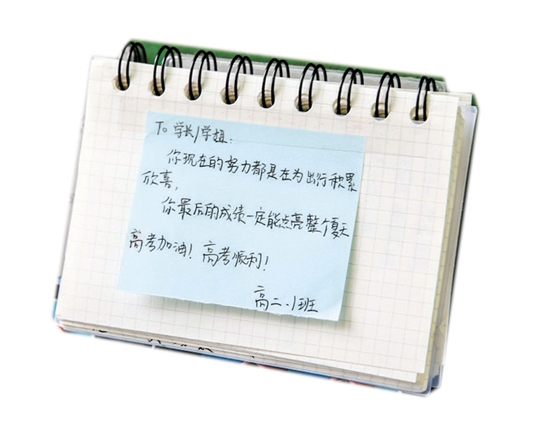 To 学长/学姐:
你现在的努力都是在为出行积累
欣喜,
你最后的成绩一定能点亮整个夏天
高考加油! 高考顺利!
高二.1班